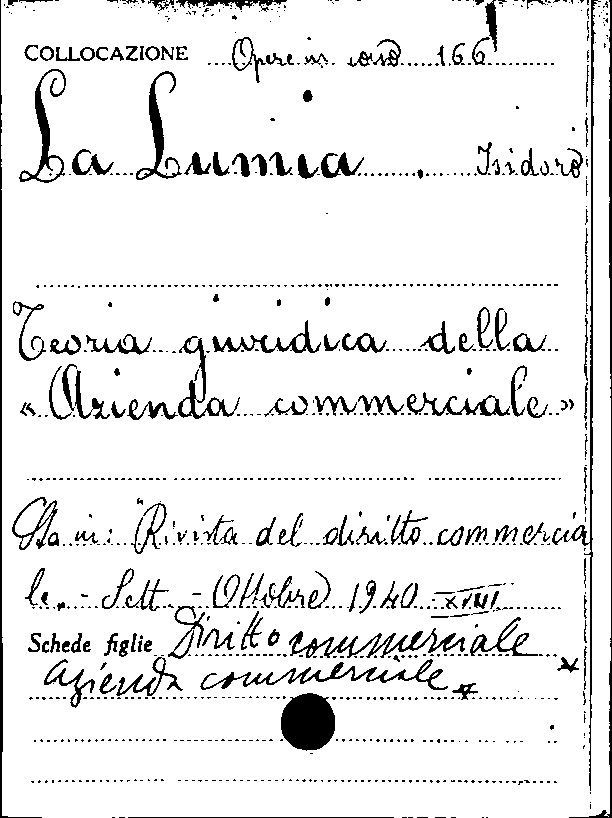 COLLOCAZIONE Opere in corso 166
La Lumia . Isidoro
Teoria giuridica della
« Azienda commerciale »
Sta in: "Rivista del diritto commercia
le. - Sett. - Ottobre 1940 XVIII
Schede figlie Diritto commerciale
azienda commerciale